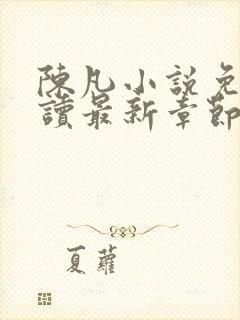 陳凡小說免
讀最新章節
夏蘿